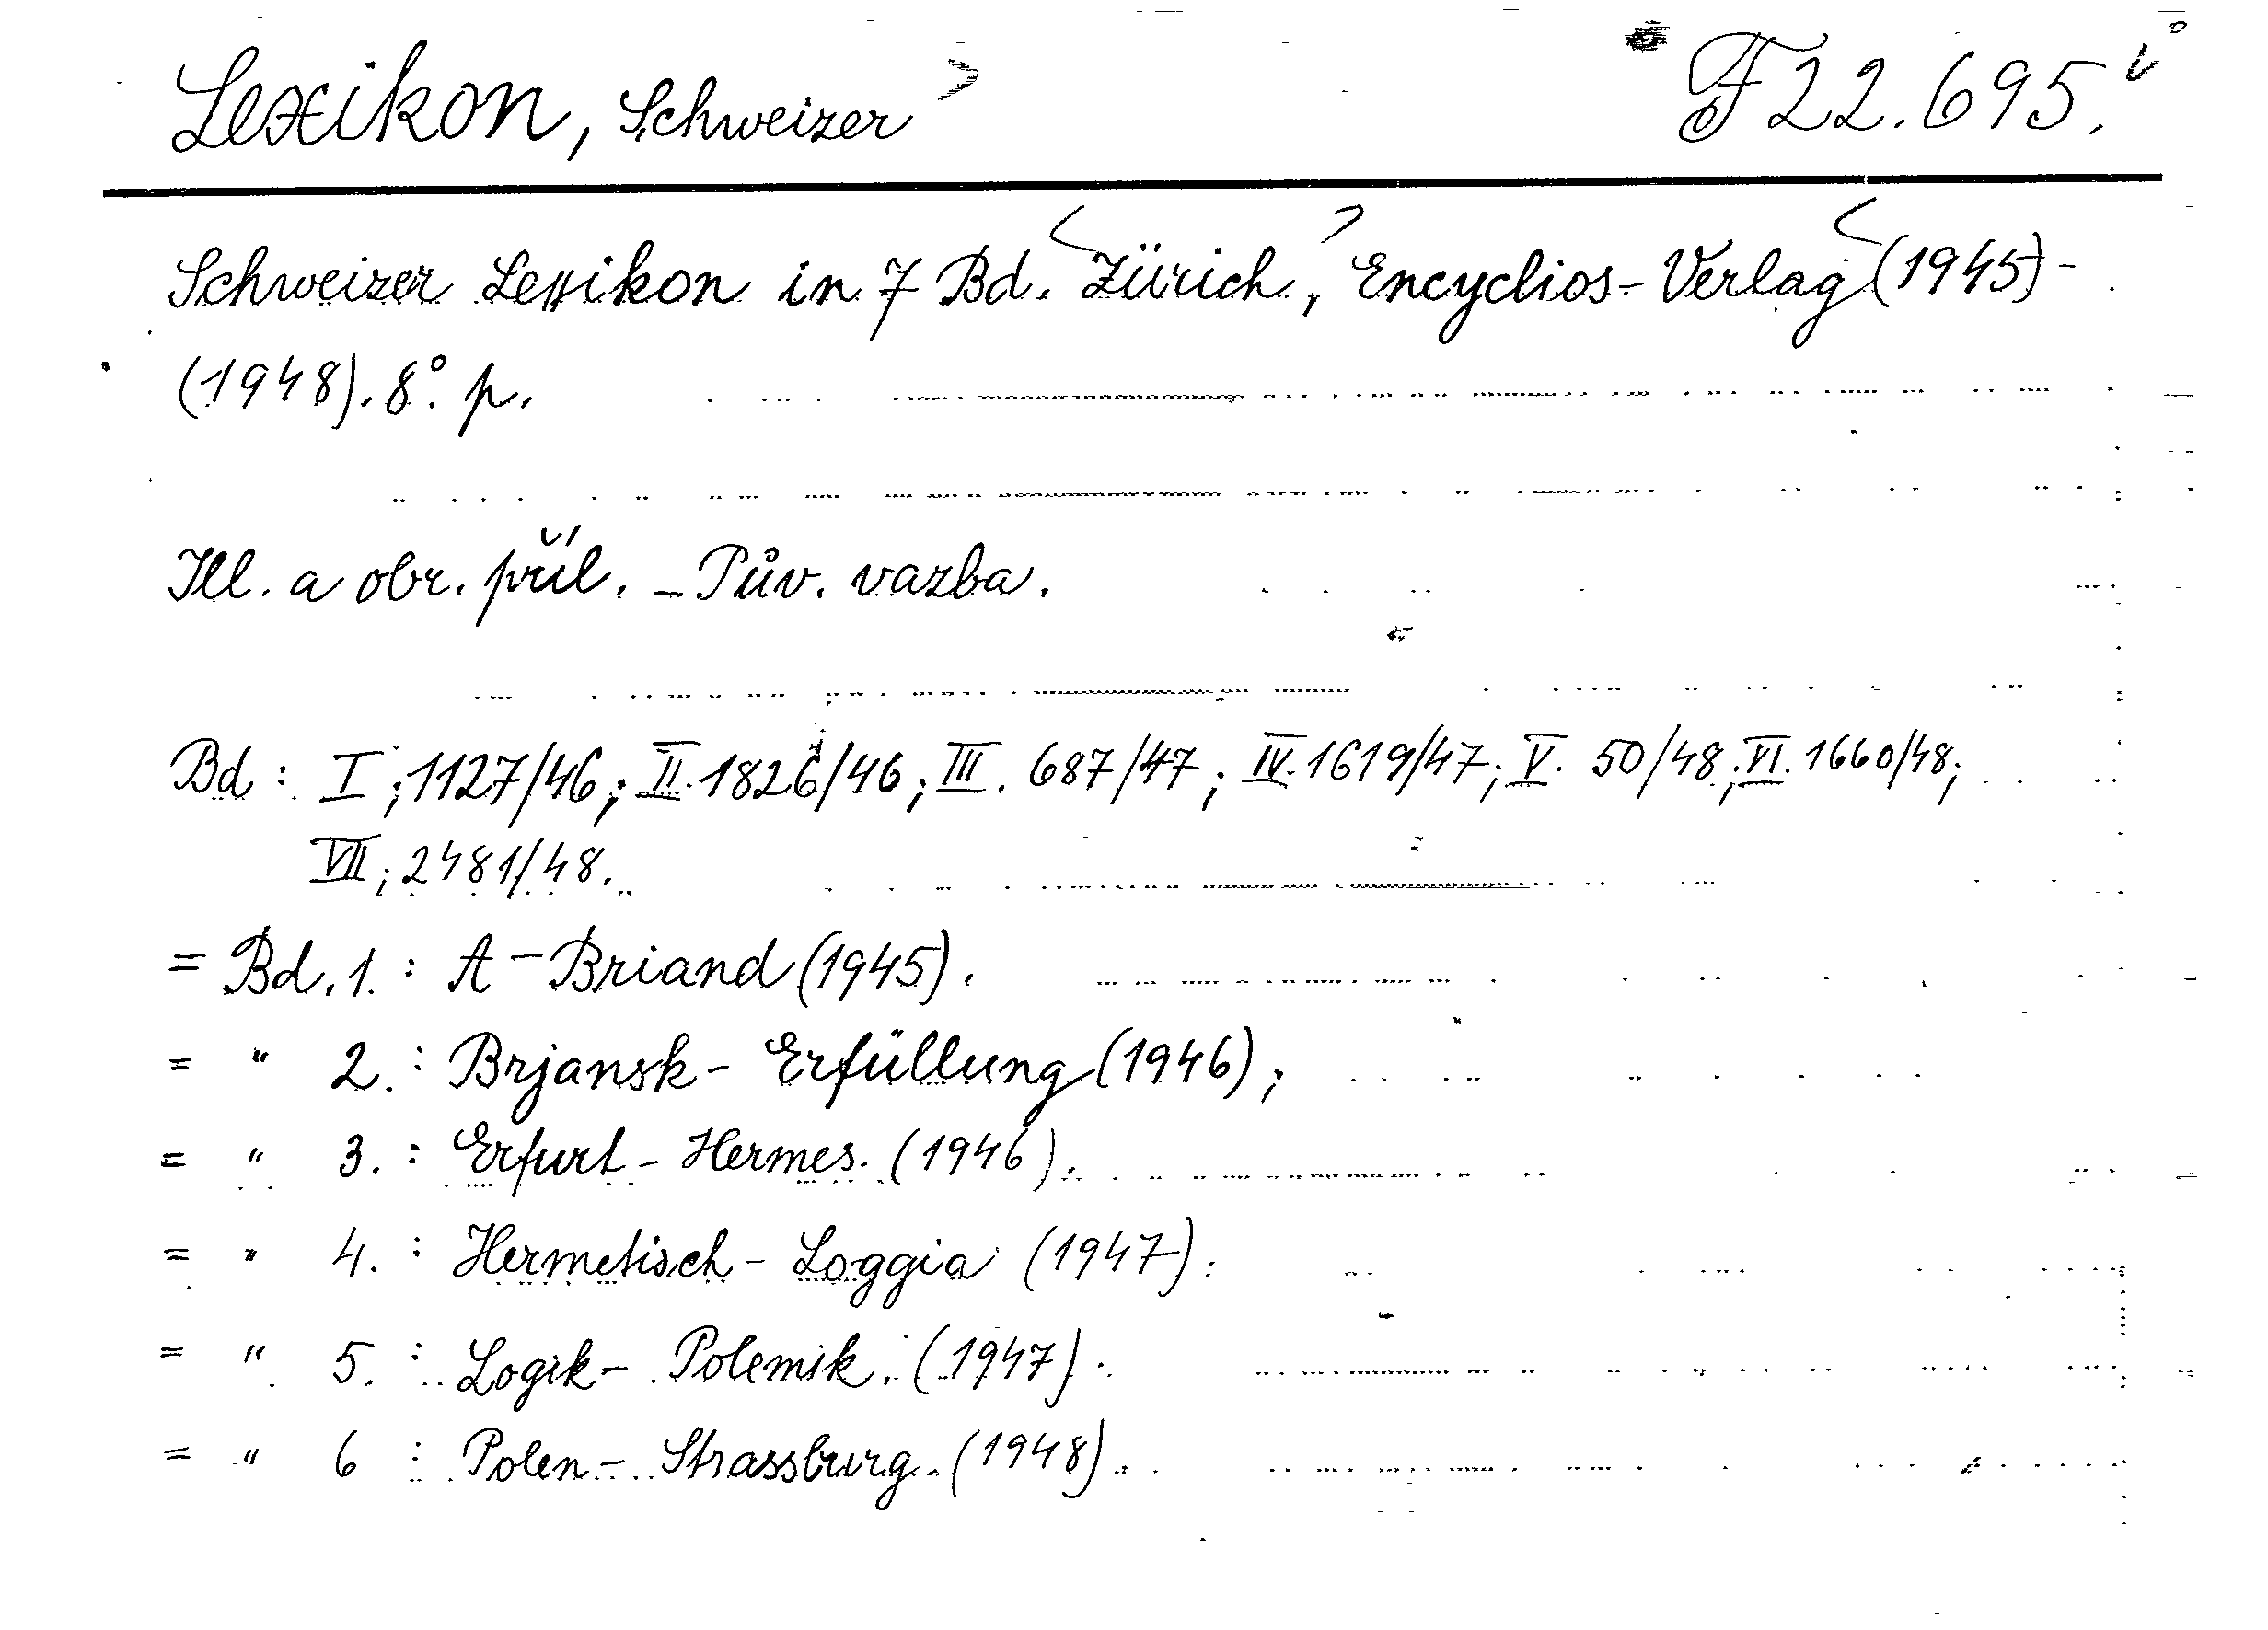 Lexikon, Schweizer F 22.695.
Schweizer Lexikon in 7 Bd. Zürich, Encyclios-Verlag (1945)-
(1948). 8°. p.
Ill. a obr. příl. - Pův. vazba.
Bd : I; 1127/46; II. 1826/46; III. 687/47; IV. 1619/47; V. 50/48; VI. 1660/48;
VII; 2481/48.
= Bd. 1. : A - Briand (1945).
= " 2. : Brjansk - Erfüllung (1946);
= " 3. : Erfurt - Hermes. (1946).
= " 4. : Hermetisch - Loggia (1947).
= " 5. : Logik - Polemik. (1947).
= " 6 : Polen - Strassburg. (1948).